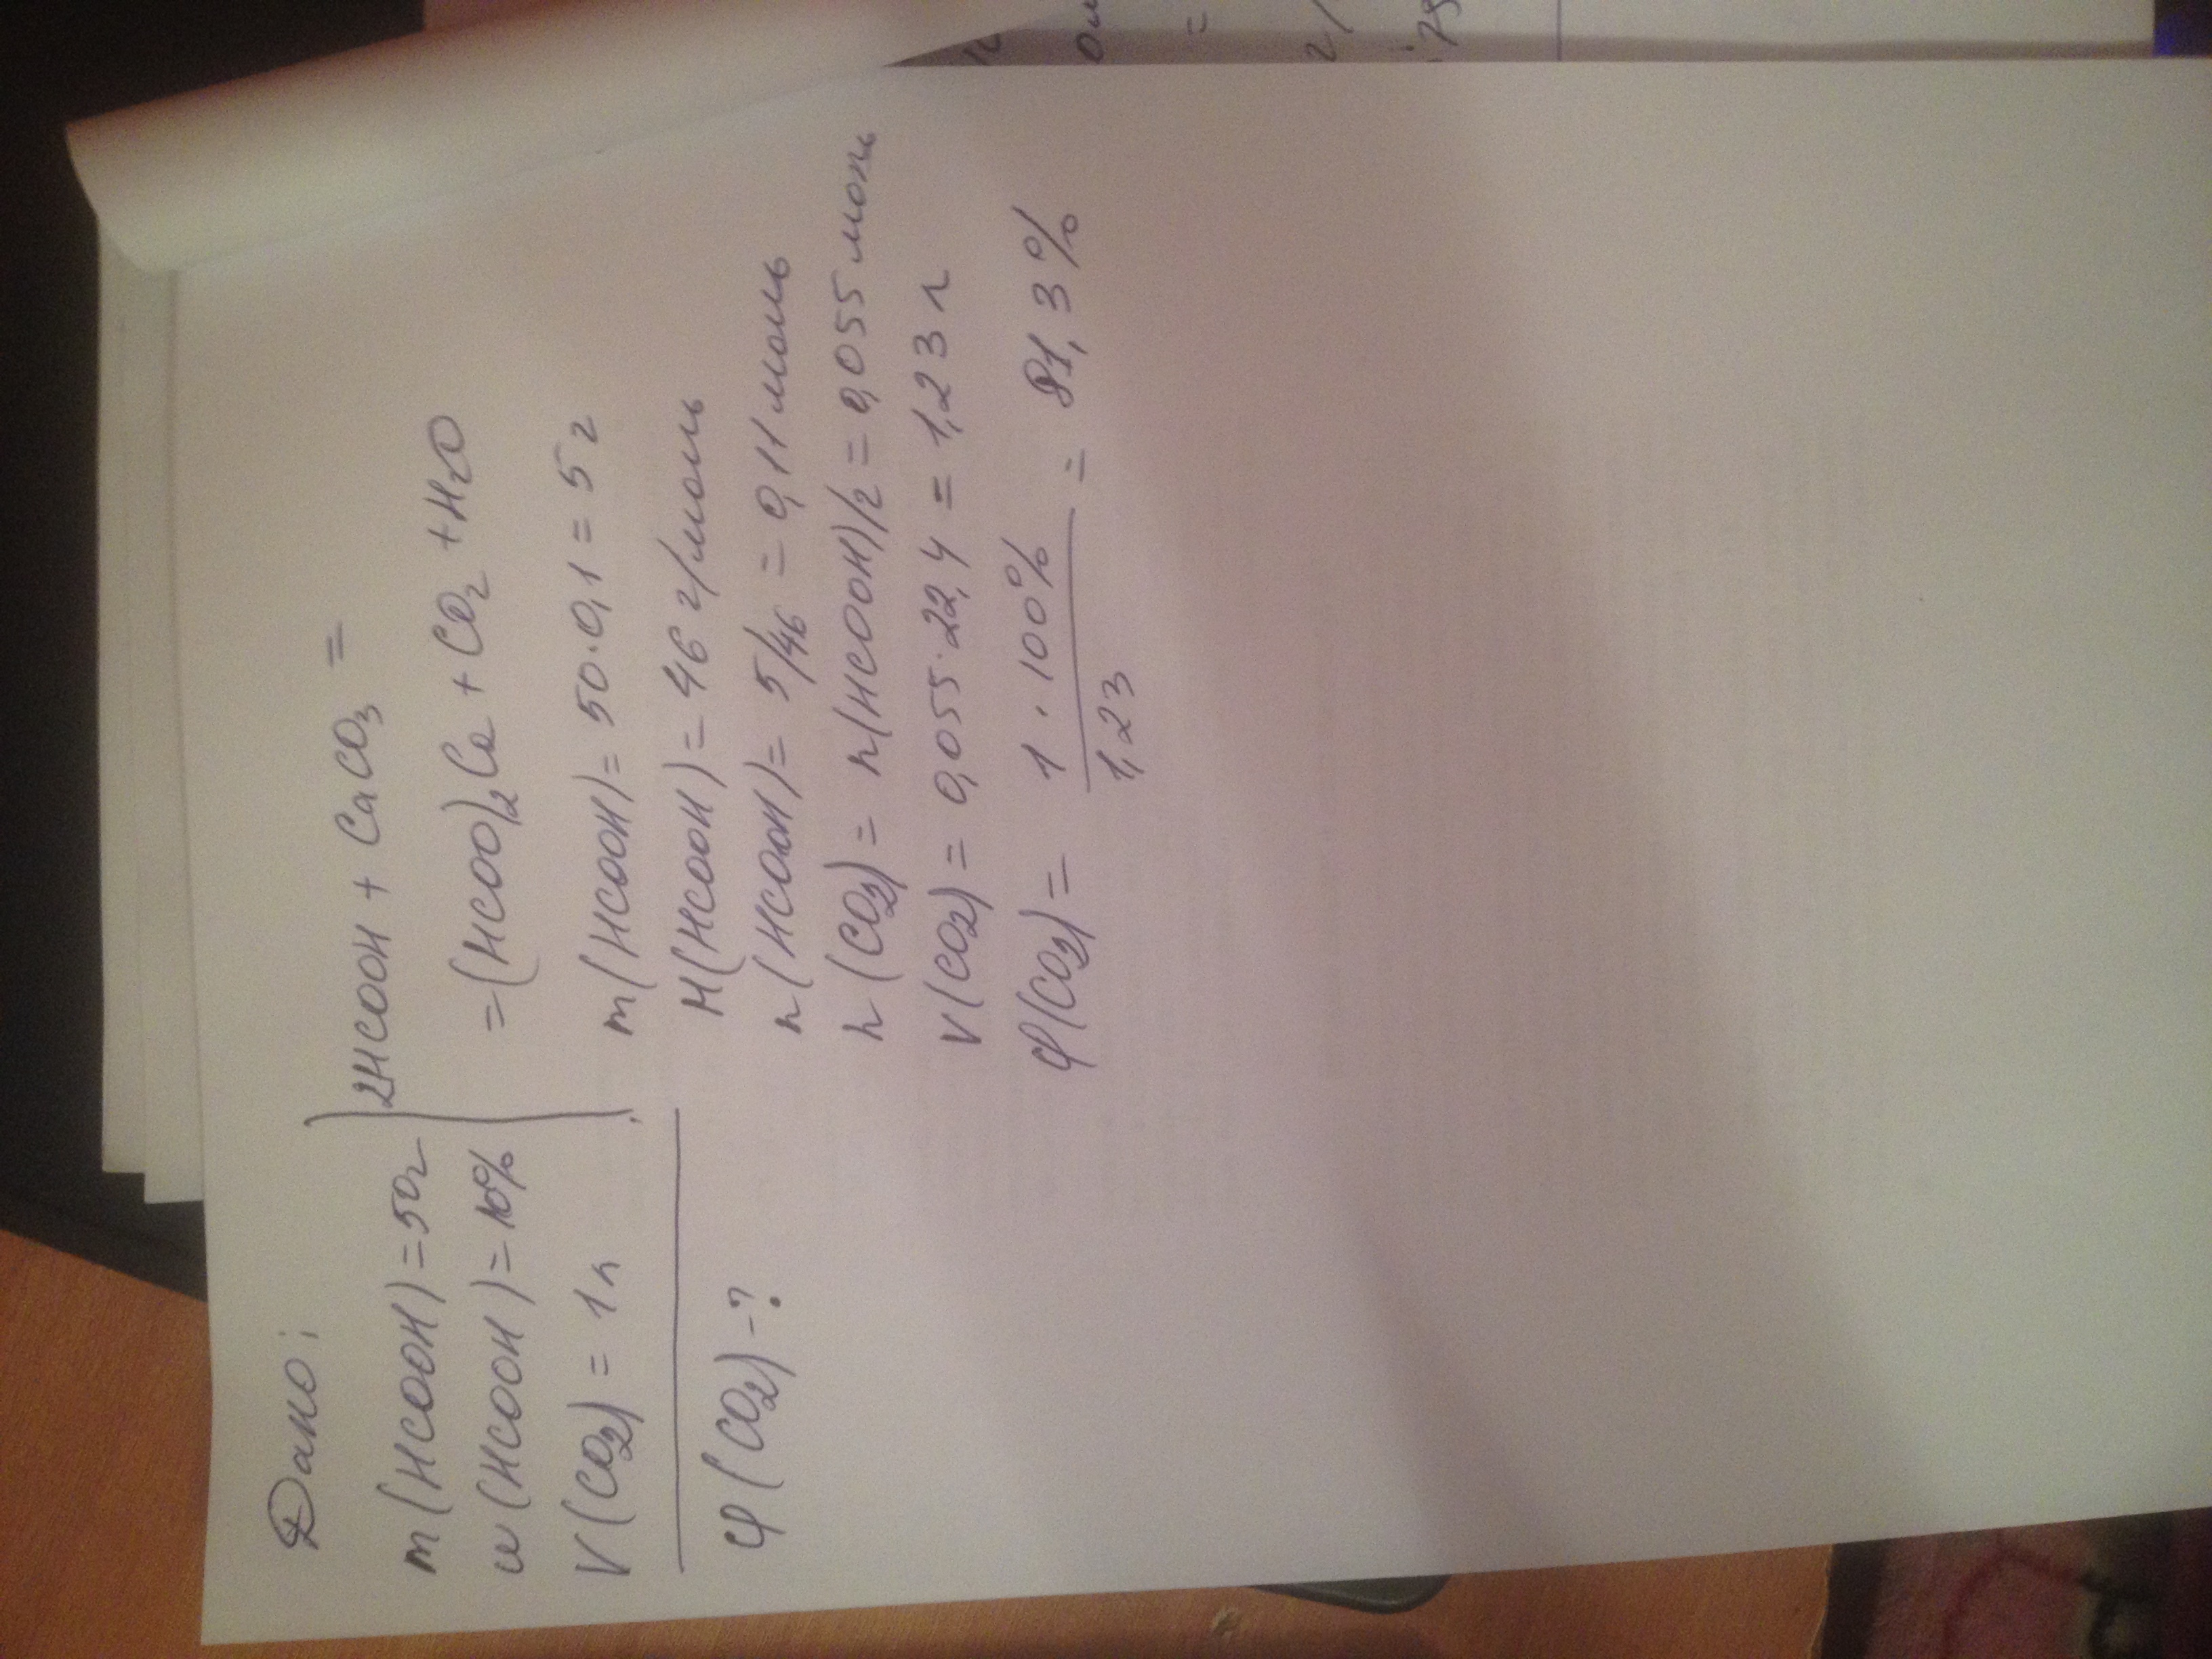 Дано:
m(HCOOH)=50г
w(HCOOH)=10%
V(CO2)=1л
φ(CO2)-?
2HCOOH + CaCO3 =
=(HCOO)2Ca + CO2 + H2O
m(HCOOH)=50·0,1=5г
M(HCOOH)=46 г/моль
n(HCOOH)=5/46=0,11 моль
n(CO2)=n(HCOOH)/2=0,055 моль
V(CO2)=0,055·22,4=1,23 л
φ(CO2)= 1·100% / 1,23 = 81,3%